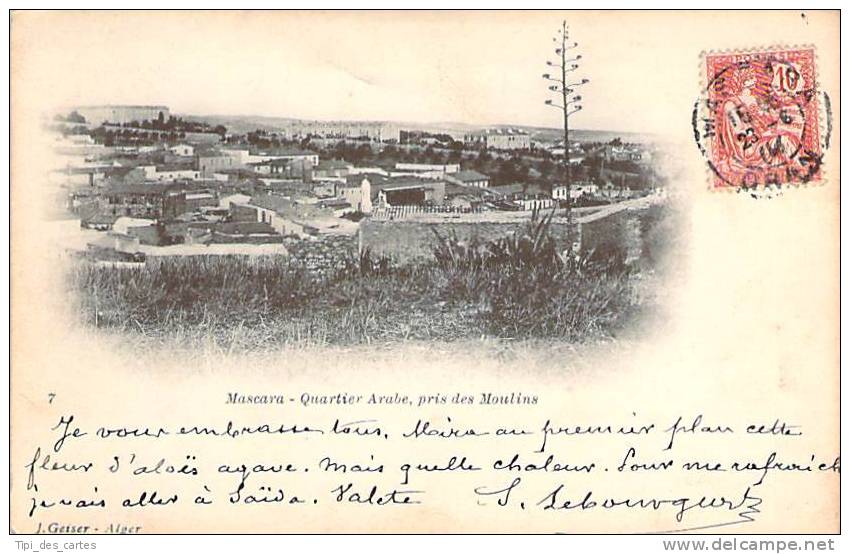 10
MASCARA
ORAN
7 Mascara - Quartier Arabe, pris des Moulins
Je vous embrasse tous. Mira au premier plan cette
fleur d'aloës agave. Mais quelle chaleur. Pour me rafraich
je vais aller à Saïda. Valete
J. Geiser - Alger
Tipi_des_cartes
©www.delcampe.net